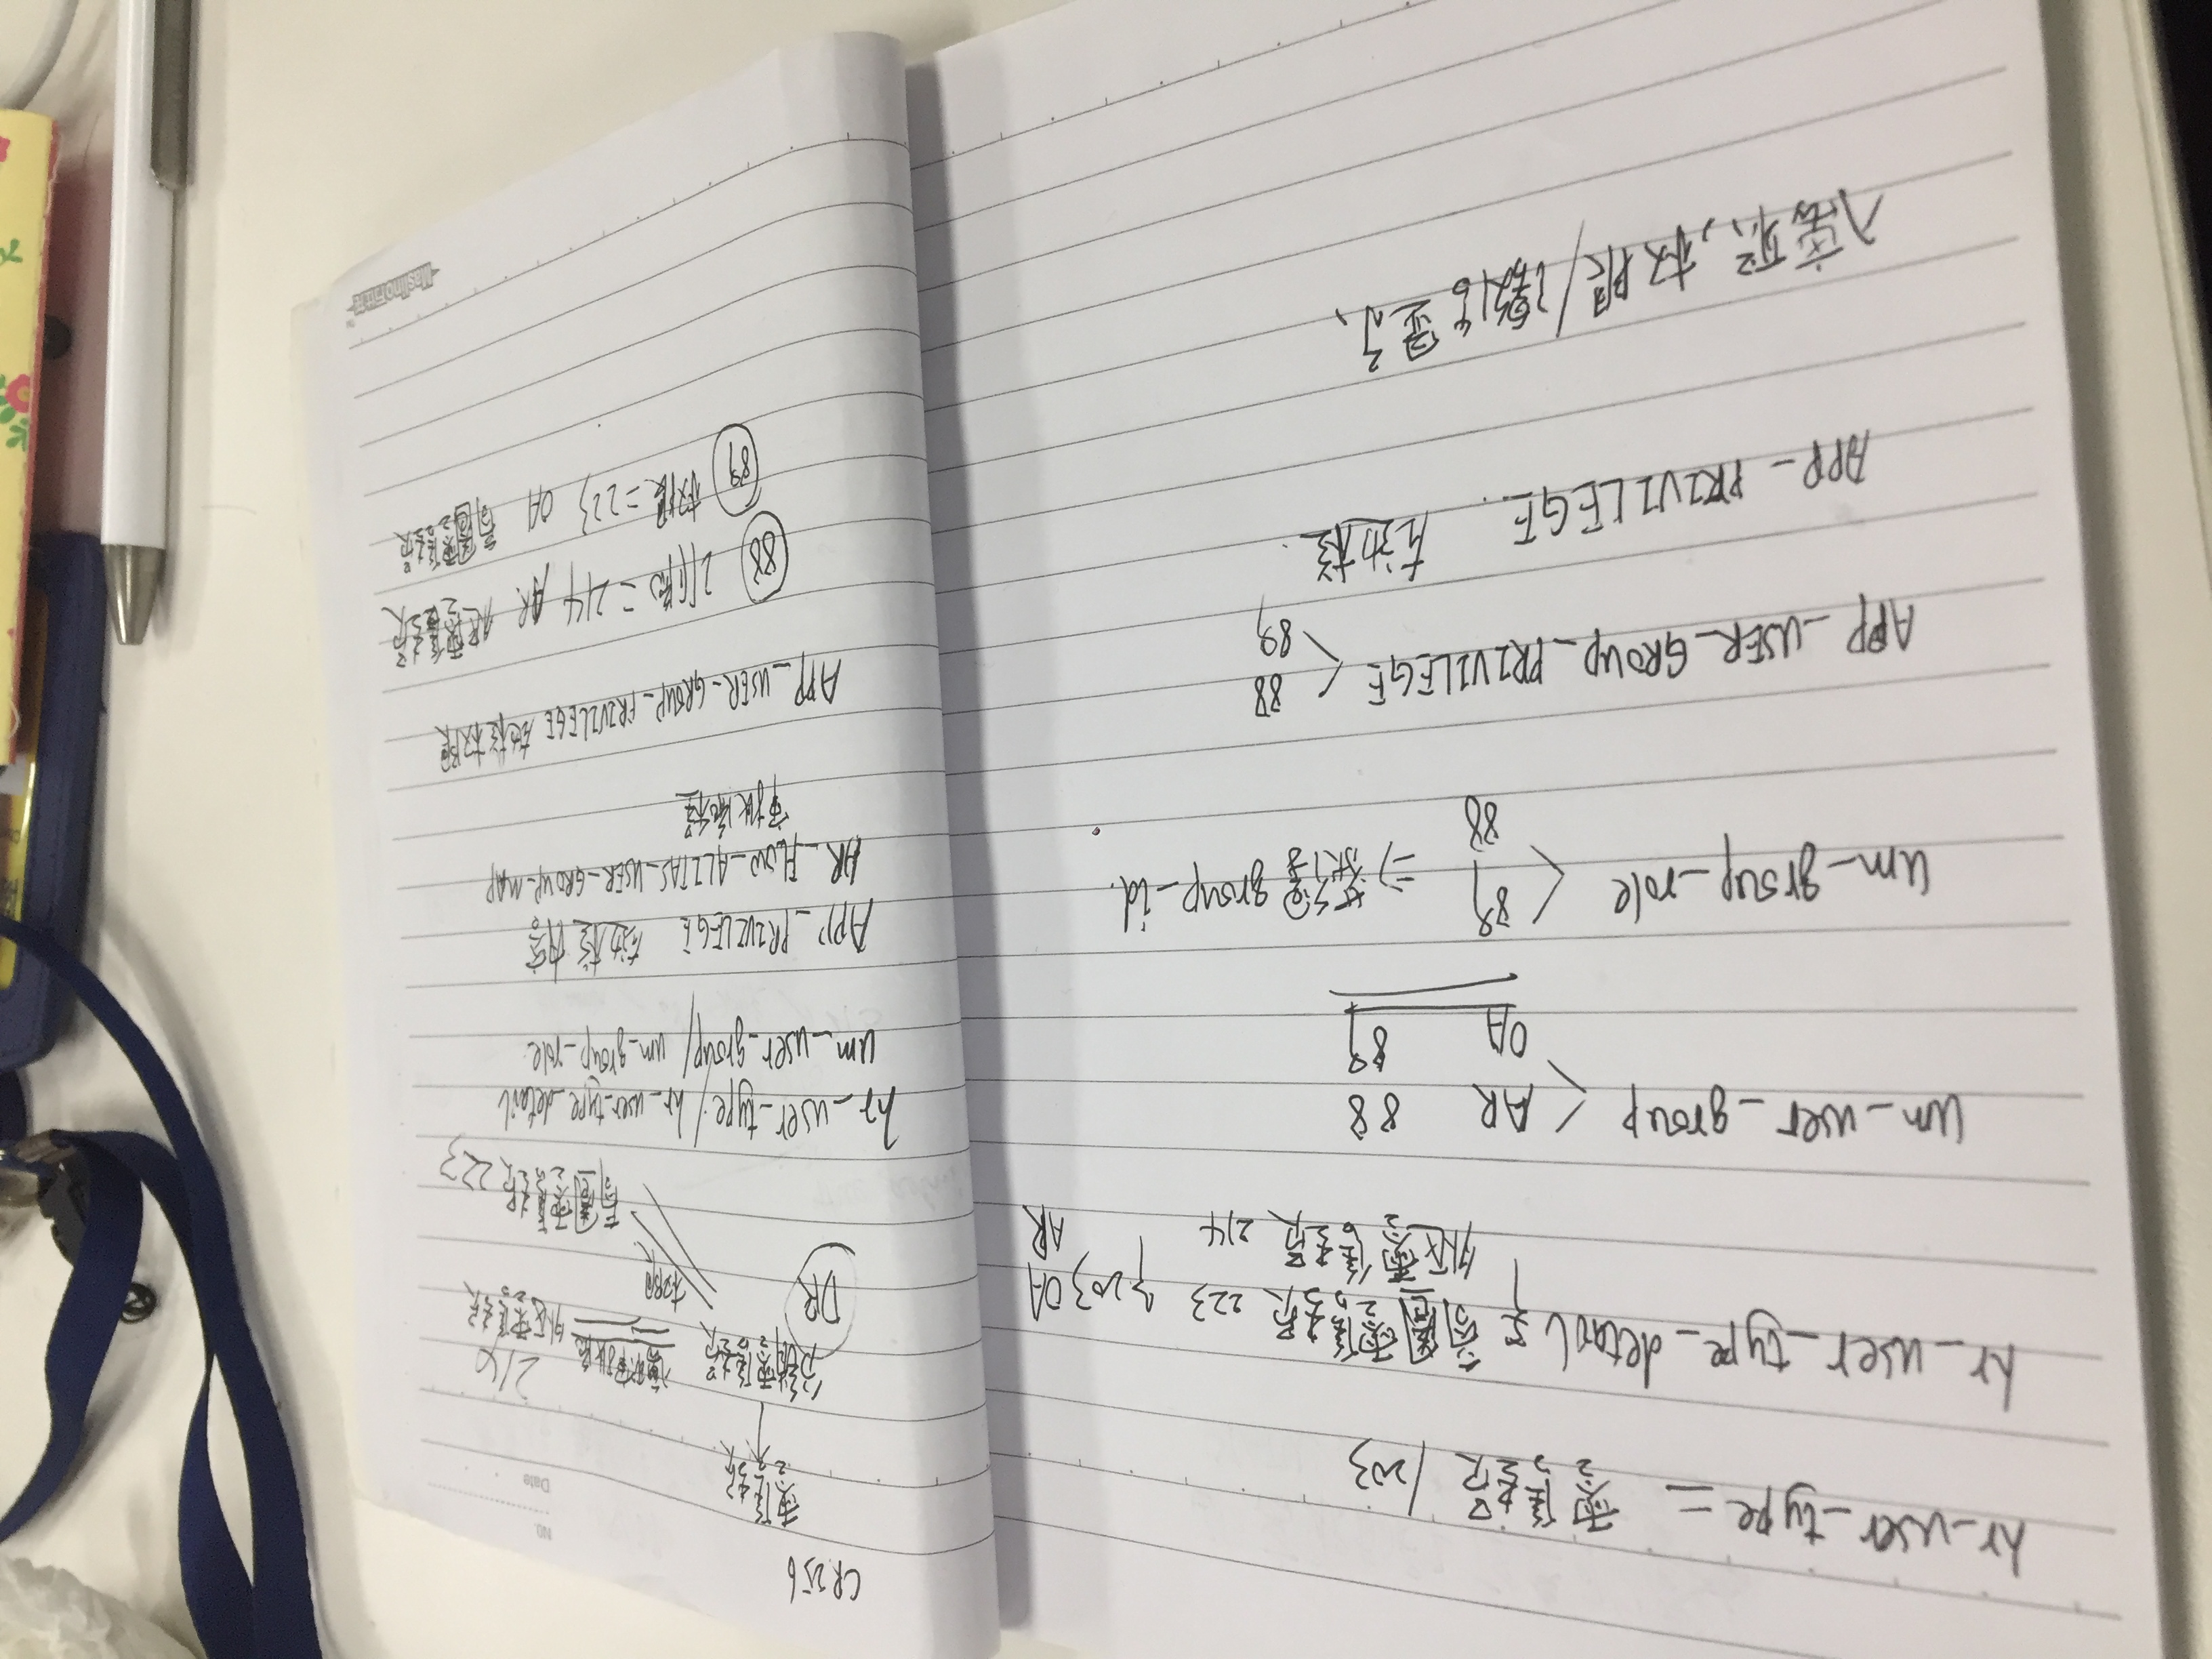 hr_user_type — 零售員/203
hr_user_type_detail 商圈零售員 223 203 OA
外區零售員 214 AR
um_user_group < AR 88
OA 89
um_group_role < 89 => 获得group_id.
88
APP_USER_GROUP_PRIVILEGE < 88
89
APP_PRIVILEGE 左边栏.
入离职,权限/激活显示、
No.
Date
CR256
零售
214
零售員 外區零售員
DR 权限
商圈零售員 223
hr_user_type/hr_user_type_detail
um_user_group/um_group_role.
APP_PRIVILEGE 左边栏内容
AR_FLOW_ALIAS_USER_GROUP_MAP
审批流程
APP_USER_GROUP_PRIVILEGE 权限
88 = 214 AR 零售員
89 权限=223 OA 商圈零售員